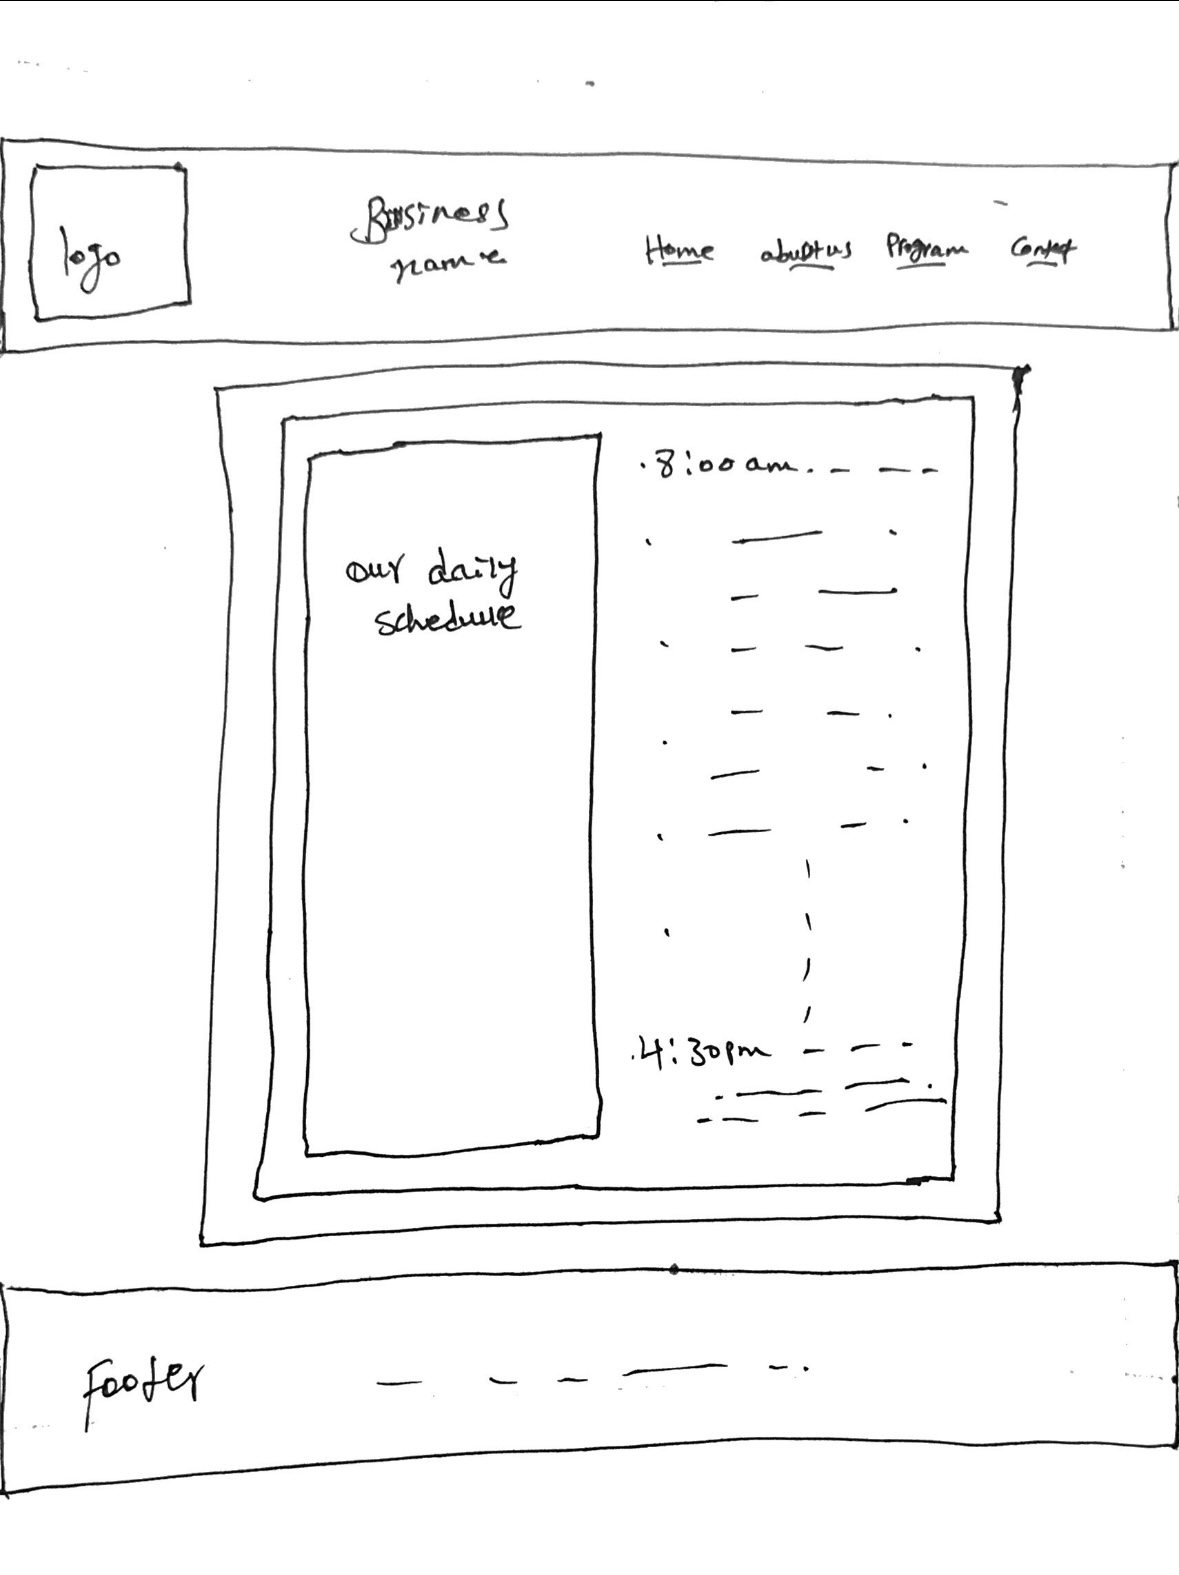 logo
Business
name
Home about us Program Contact
our daily
schedule
.8:00 am.
.4:30pm
Footer